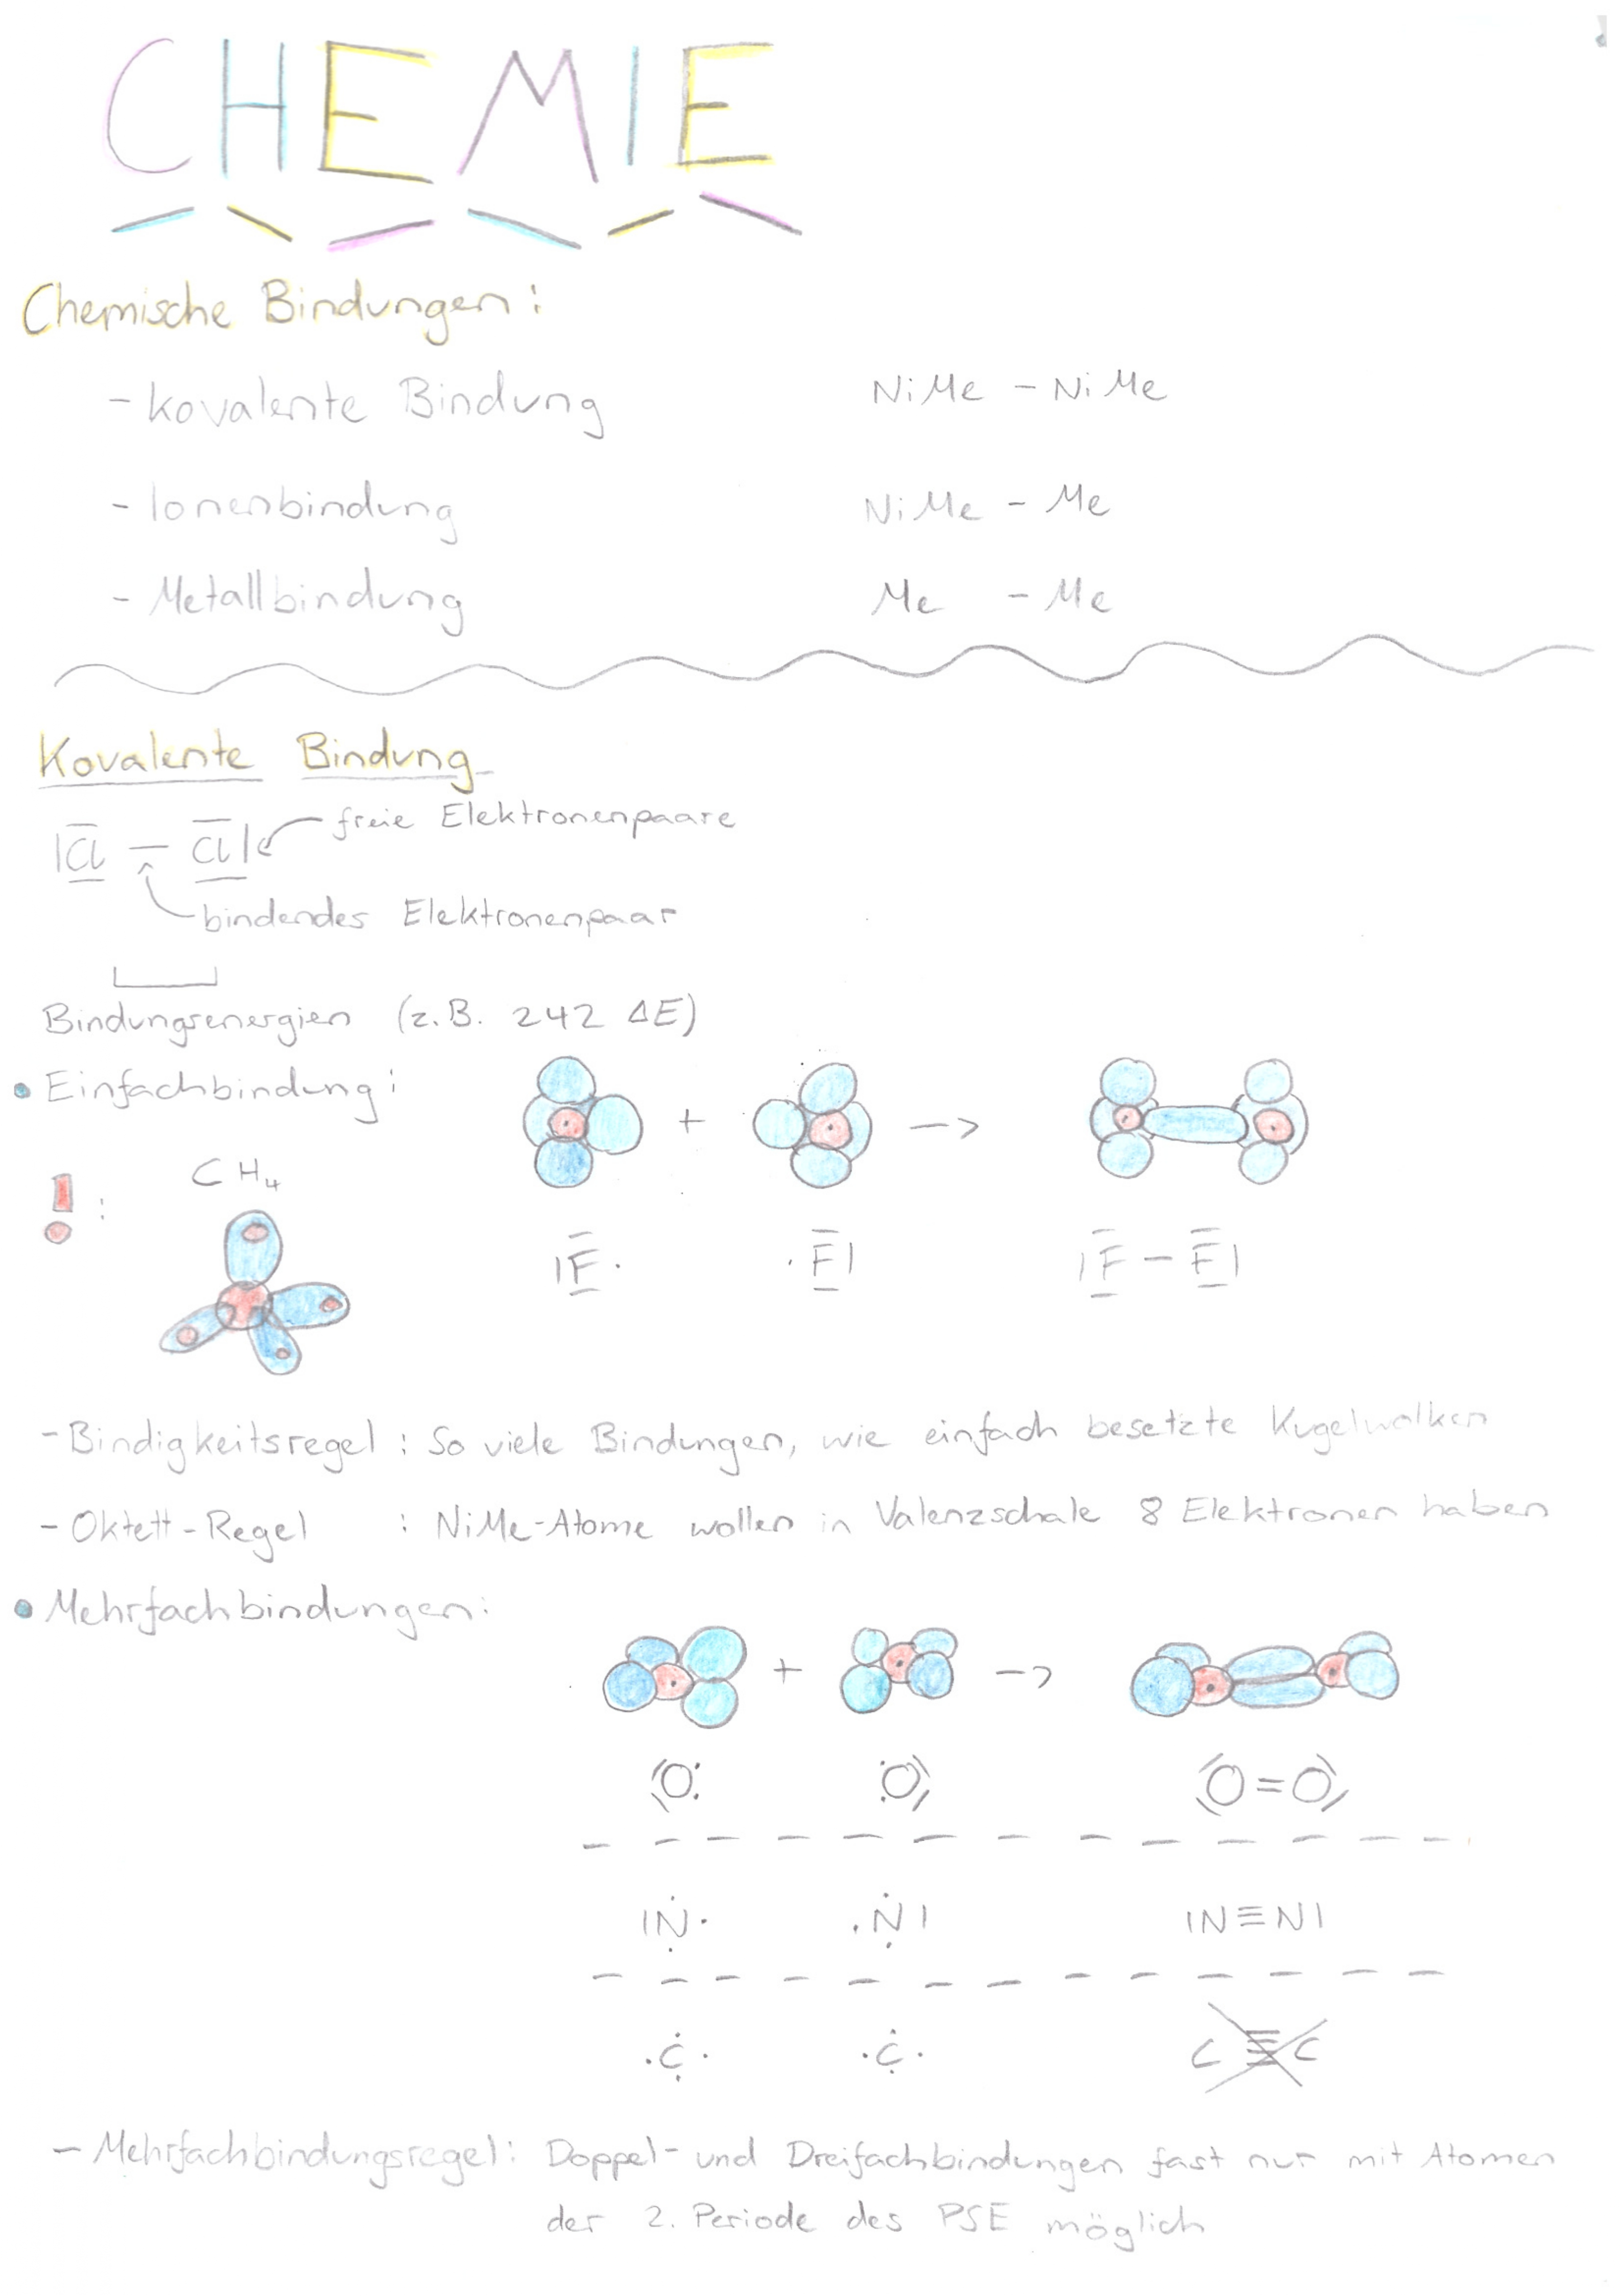 CHEMIE
Chemische Bindungen:
- kovalente Bindung NiMe - NiMe
- Ionenbindung NiMe - Me
- Metallbindung Me - Me
Kovalente Bindung
|Cl - Cl| freie Elektronenpaare
bindendes Elektronenpaar
Bindungsenergien (z.B. 242 ΔE)
• Einfachbindung:
+ ->
! : CH₄
|F· ·F| |F - F|
- Bindigkeitsregel : So viele Bindungen, wie einfach besetzte Kugelwolken
- Oktett-Regel : NiMe-Atome wollen in Valenzschale 8 Elektronen haben
• Mehrfachbindungen:
+ ->
⟨O: :O⟩ ⟨O=O⟩
|N· ·N| |N≡N|
·C· ·C· C≣C
- Mehrfachbindungsregel: Doppel- und Dreifachbindungen fast nur mit Atomen
der 2. Periode des PSE möglich